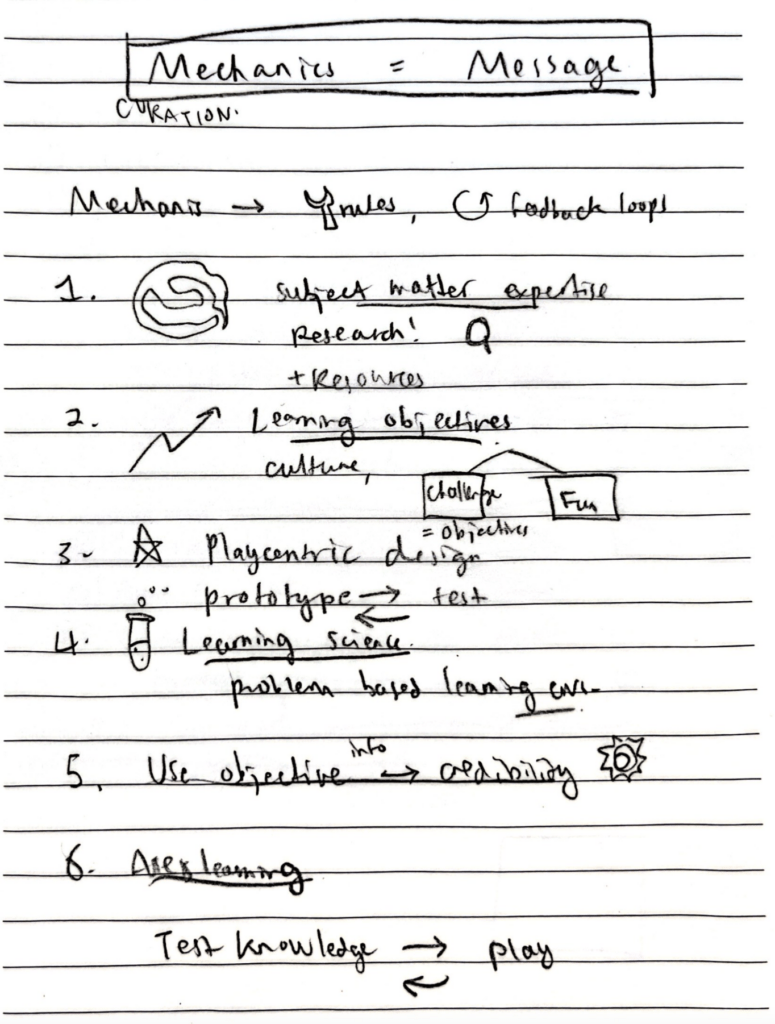 Mechanics = Message
CURATION.
Mechanis → rules, feedback loops
1. subject matter expertise
Research!
+ Resources
2. Learning objectives
culture,
Challenge
Fun
= objectives
3- Playcentric design
prototype → test
←
4. Learning science.
problem based learning
5. Use objective info → credibility
6. learning
Test knowledge → play
←